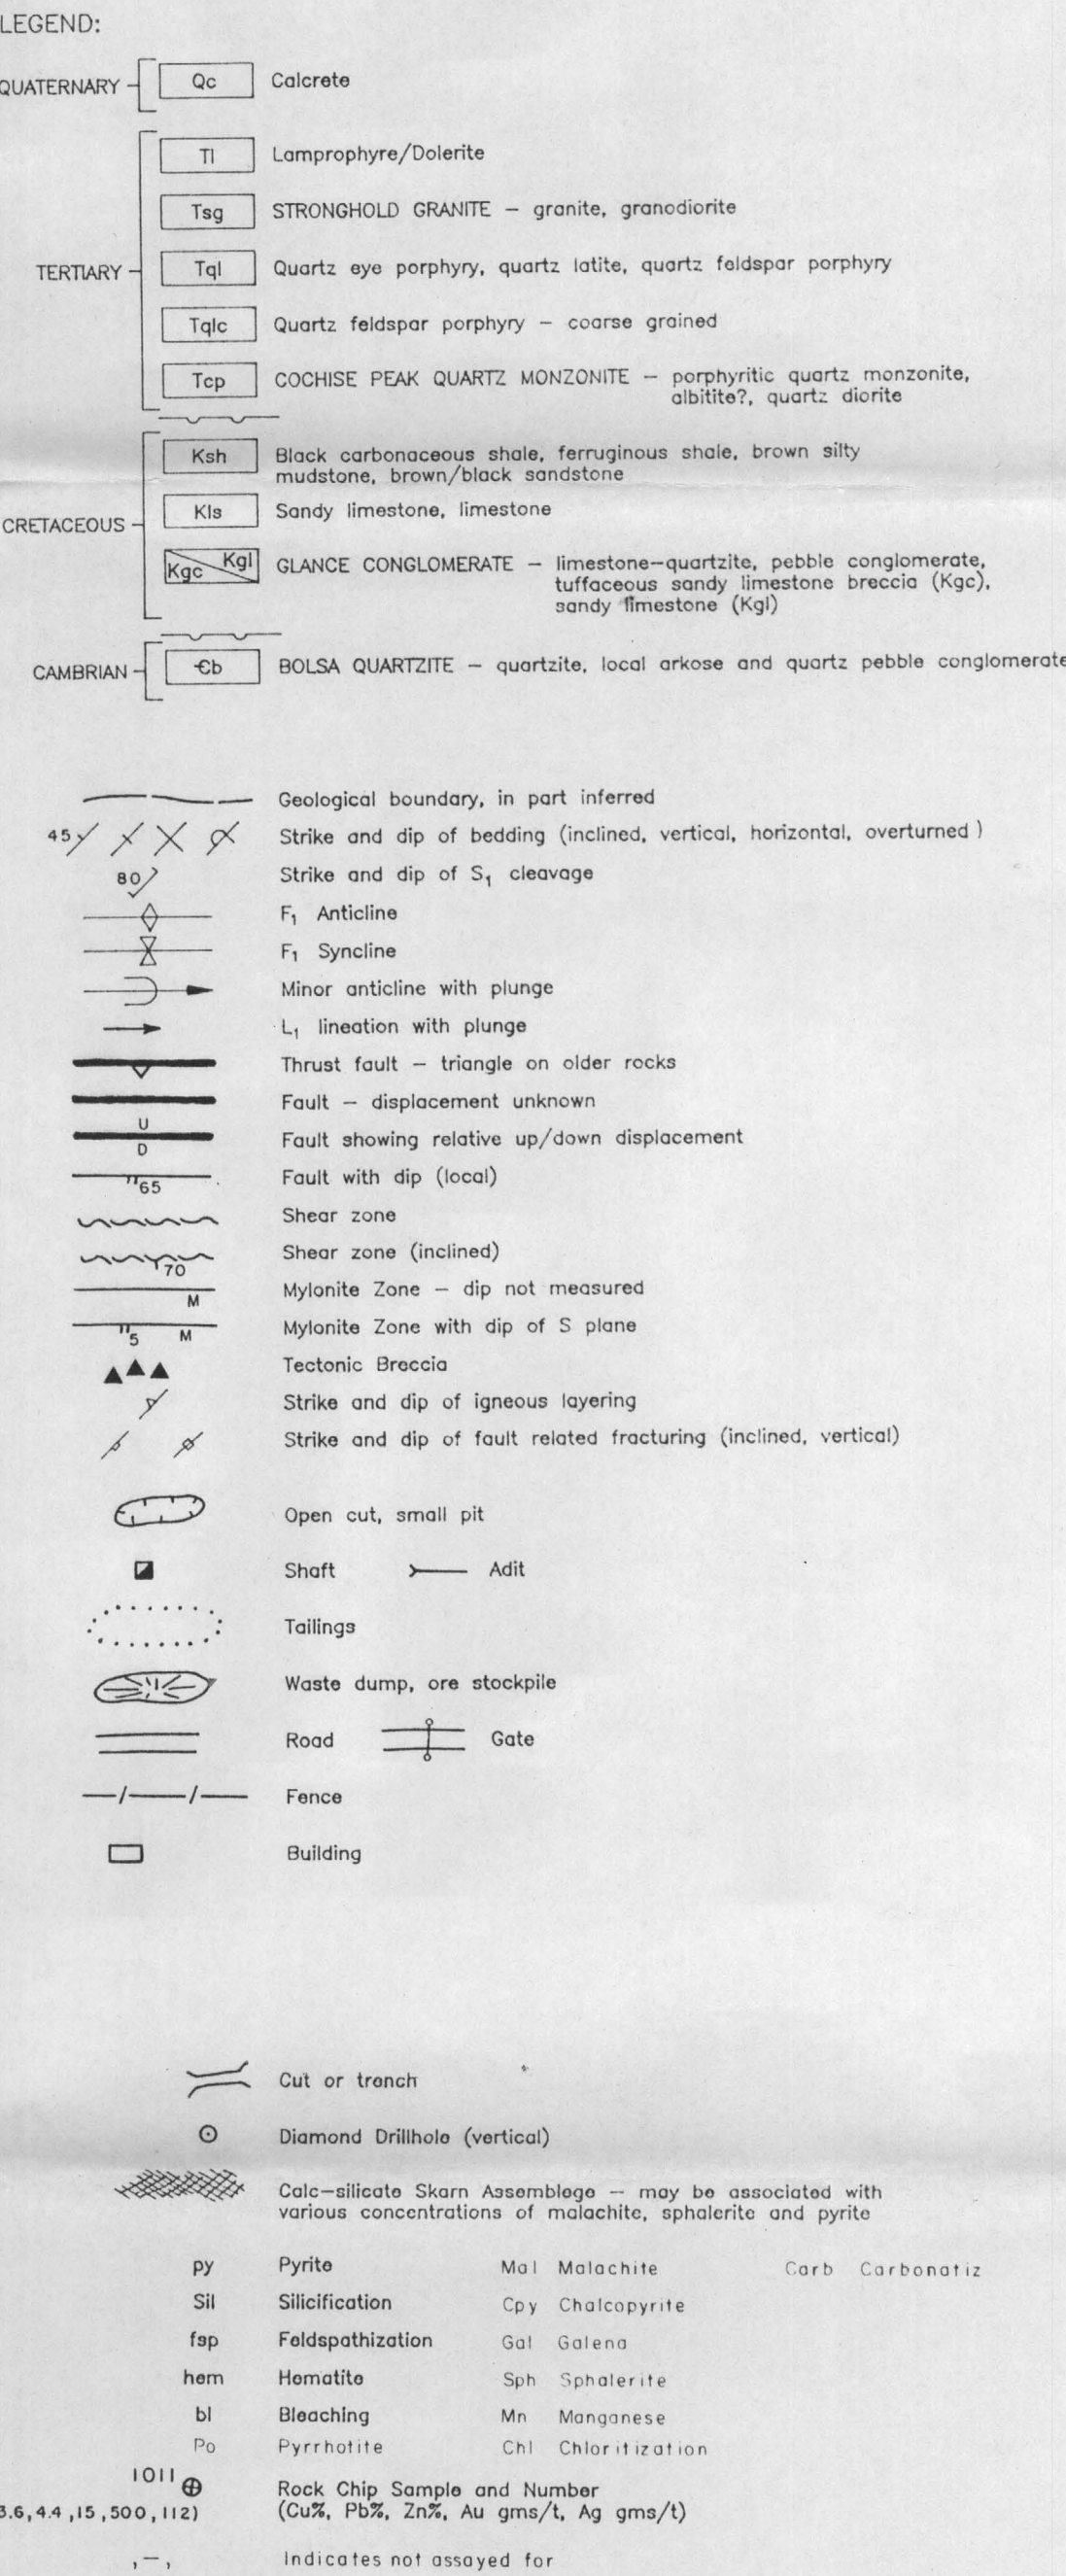 LEGEND:
QUATERNARY Qc Calcrete
Tl Lamprophyre/Dolerite
Tsg STRONGHOLD GRANITE – granite, granodiorite
TERTIARY Tql Quartz eye porphyry, quartz latite, quartz feldspar porphyry
Tqlc Quartz feldspar porphyry – coarse grained
Tcp COCHISE PEAK QUARTZ MONZONITE – porphyritic quartz monzonite,
albitite?, quartz diorite
Ksh Black carbonaceous shale, ferruginous shale, brown silty
mudstone, brown/black sandstone
CRETACEOUS Kls Sandy limestone, limestone
Kgc Kgl GLANCE CONGLOMERATE – limestone–quartzite, pebble conglomerate,
tuffaceous sandy limestone breccia (Kgc),
sandy limestone (Kgl)
CAMBRIAN Єb BOLSA QUARTZITE – quartzite, local arkose and quartz pebble conglomerate
Geological boundary, in part inferred
45 Strike and dip of bedding (inclined, vertical, horizontal, overturned )
80 Strike and dip of S₁ cleavage
F₁ Anticline
F₁ Syncline
Minor anticline with plunge
L₁ lineation with plunge
Thrust fault – triangle on older rocks
Fault – displacement unknown
U
D Fault showing relative up/down displacement
65 Fault with dip (local)
Shear zone
70 Shear zone (inclined)
M Mylonite Zone – dip not measured
5 M Mylonite Zone with dip of S plane
Tectonic Breccia
Strike and dip of igneous layering
Strike and dip of fault related fracturing (inclined, vertical)
Open cut, small pit
Shaft Adit
Tailings
Waste dump, ore stockpile
Road Gate
Fence
Building
Cut or trench
Diamond Drillhole (vertical)
Calc–silicate Skarn Assemblage – may be associated with
various concentrations of malachite, sphalerite and pyrite
py Pyrite Mal Malachite Carb Carbonatiz
Sil Silicification Cpy Chalcopyrite
fsp Feldspathization Gal Galena
hem Hematite Sph Sphalerite
bl Bleaching Mn Manganese
Po Pyrrhotite Chl Chloritization
1011 Rock Chip Sample and Number
3.6,4.4,15,500,112) (Cu%, Pb%, Zn%, Au gms/t, Ag gms/t)
,–, Indicates not assayed for